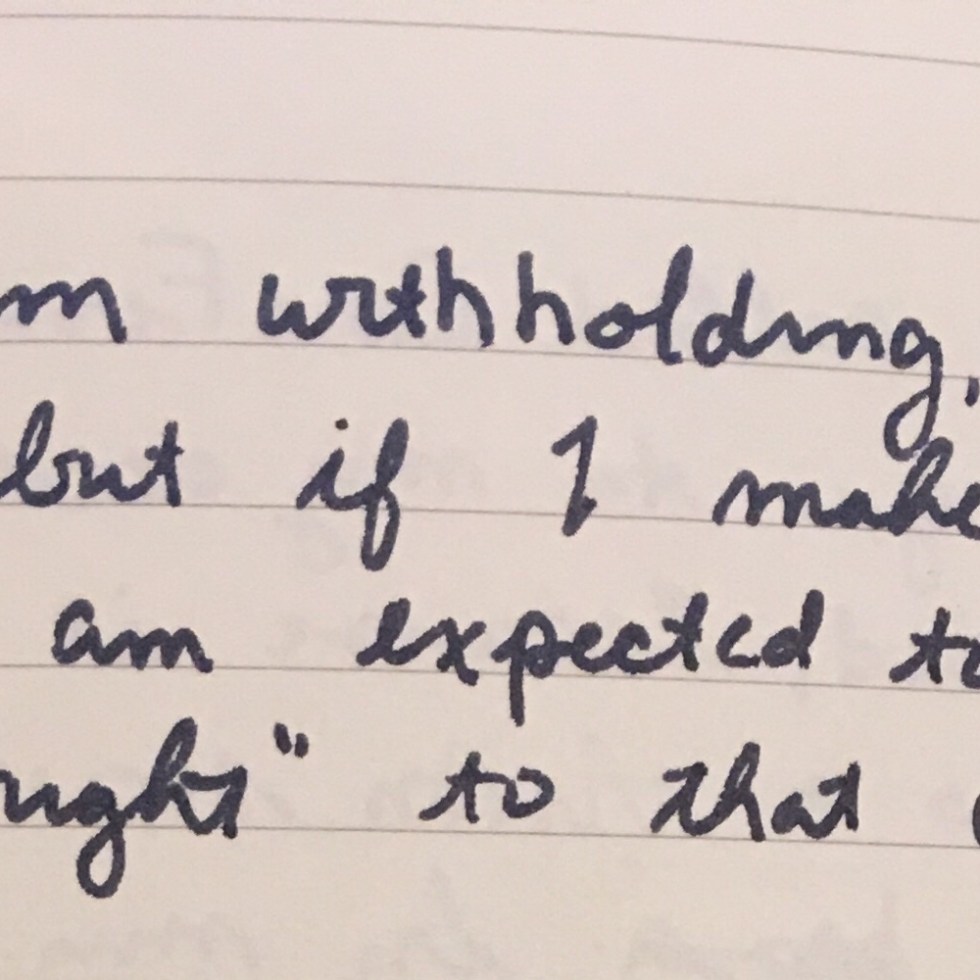 m withholding,
but if I make
am expected to
right" to that